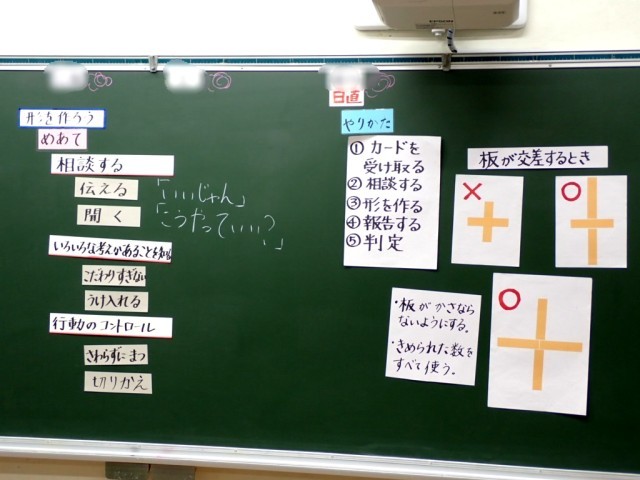 日直
形を作ろう
めあて
相談する
伝える
「いいじゃん」
聞く
「こうやっていい?」
いろいろな考えがあることを知る
こだわりすぎない
うけ入れる
行動のコントロール
さわらずにまつ
切りかえ
やりかた
① カードを
受け取る
② 相談する
③ 形を作る
④ 報告する
⑤ 判定
板が交差するとき
×
○
○
・板がかさなら
ないようにする。
・きめられた数を
すべて使う。